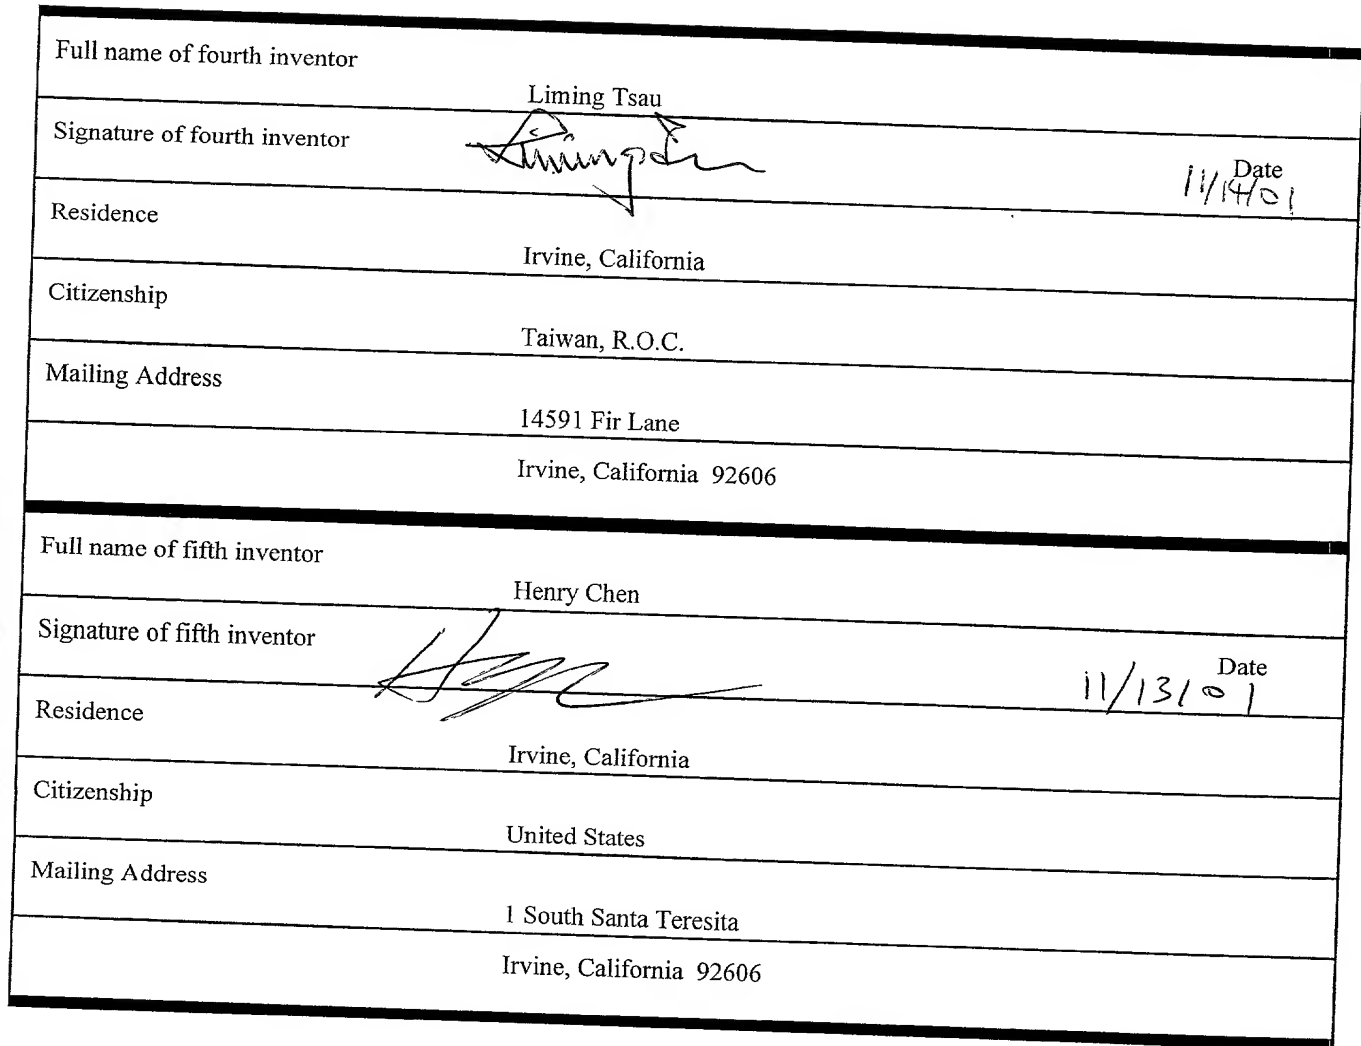 Full name of fourth inventor
Liming Tsau
Signature of fourth inventor
Date
11/14/01
Residence
Irvine, California
Citizenship
Taiwan, R.O.C.
Mailing Address
14591 Fir Lane
Irvine, California 92606
Full name of fifth inventor
Henry Chen
Signature of fifth inventor
Date
11/13/01
Residence
Irvine, California
Citizenship
United States
Mailing Address
1 South Santa Teresita
Irvine, California 92606